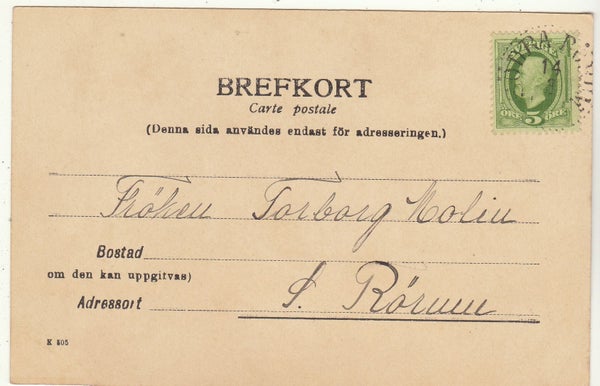 BREFKORT
Carte postale
(Denna sida användes endast för adresseringen.)
5
ÖRE ÖRE
14
Fröken Torborg Molin
Bostad
om den kan uppgitvas)
Adressort
S. Rörum
K 505